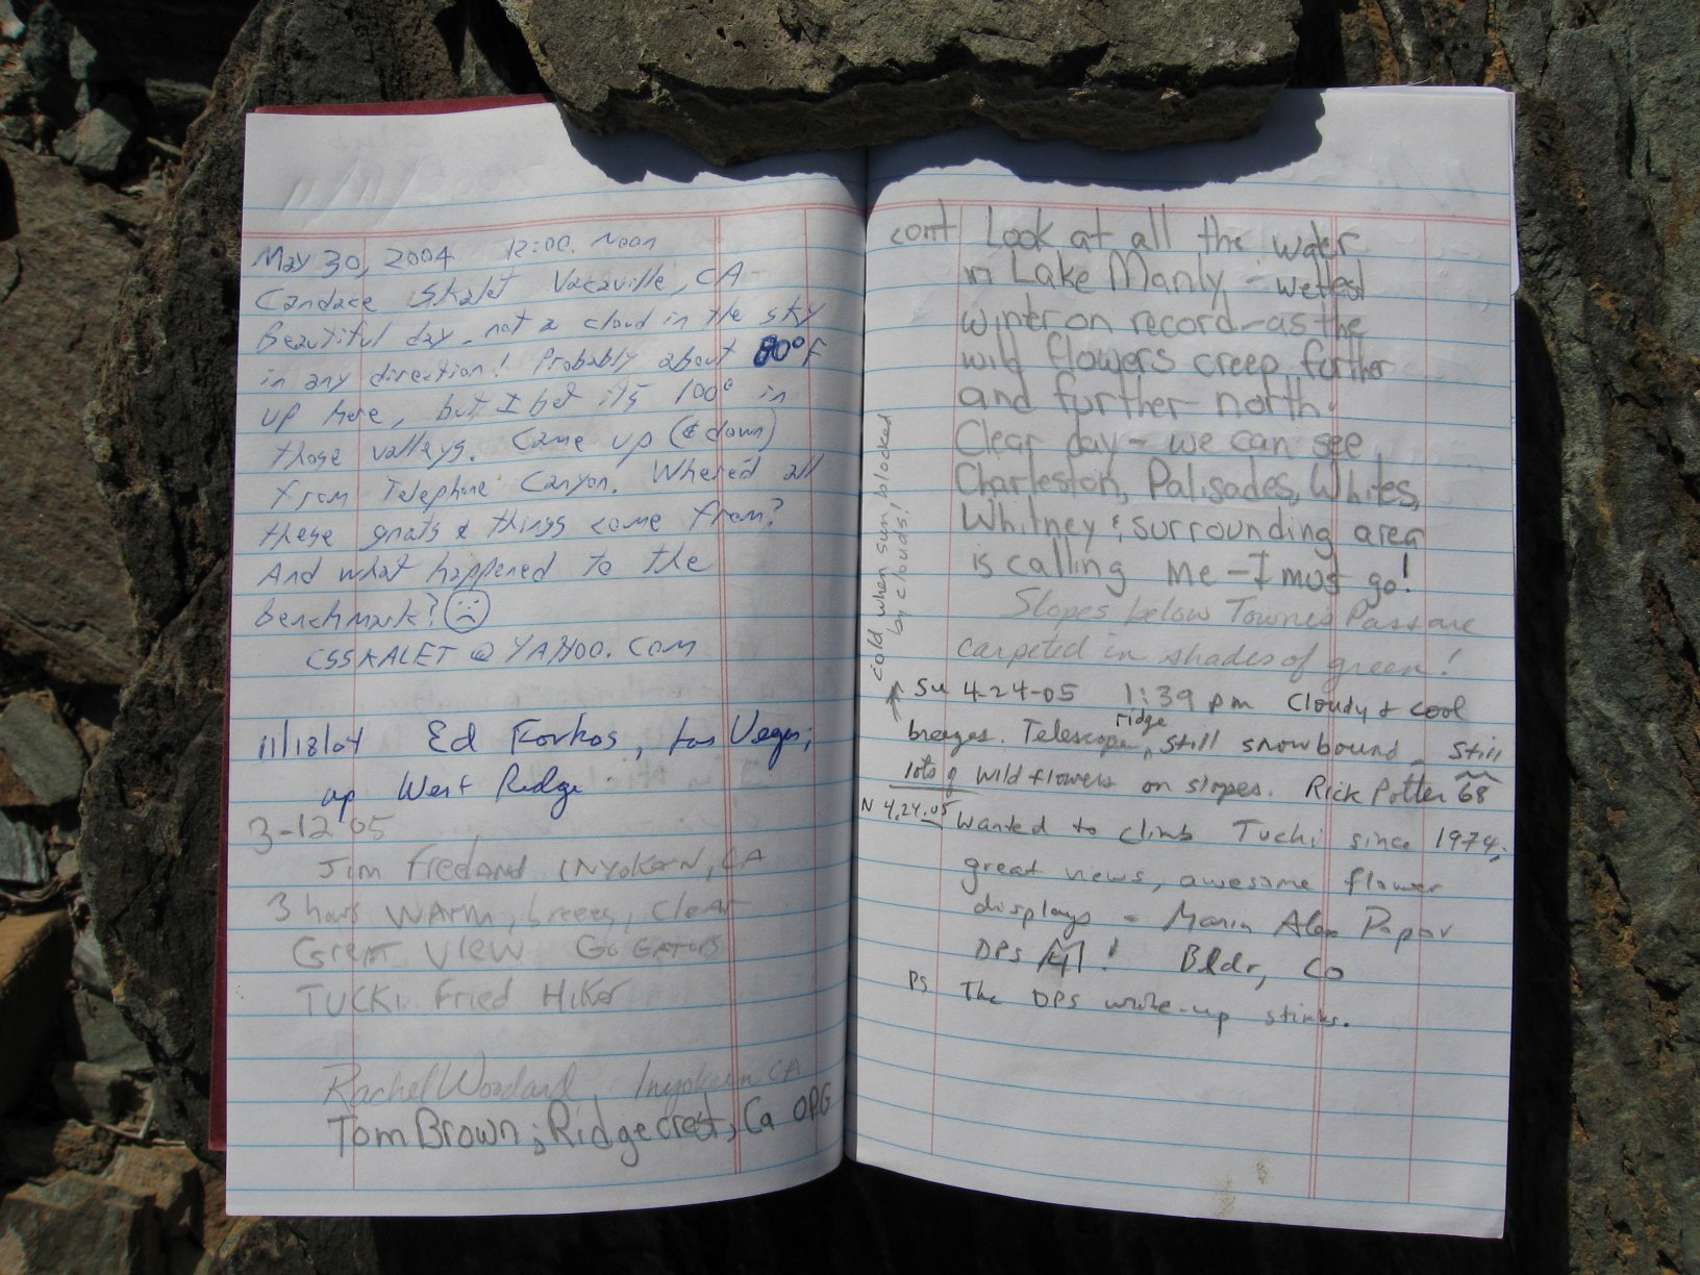 May 30, 2004 12:00. Noon
Candace Skalet Vacaville, CA
Beautiful day - not a cloud in the sky
in any direction! Probably about 80°F
up here, but I bet it's 100° in
those valleys. Came up (& down)
from Telephone Canyon. Where'd all
these gnats & things come from?
And what happened to the
benchmark? ☹
CSSKALET@YAHOO.COM
11/18/04 Ed Forkos, Las Vegas;
up West Ridge
3-12 05
Jim INYOKERN, CA
3 hours WARM, breezy, Clear
Great VIEW GO GATORS
TUCKI Fried HIKER
Rachel Woodard Inyokern CA
Tom Brown; Ridgecrest, Ca OPG
cont Look at all the water
in Lake Manly - wettest
winter on record - as the
wild flowers creep further
and further north.
Clear day - we can see
Charleston, Palisades, Whites,
Whitney & surrounding area
is calling me - I must go!
Slopes below Townes Pass are
carpeted in shades of green!
cold when sun blocked
by clouds!
Su 4-24-05 1:39 pm Cloudy & cool
breezes. Telescope ridge still snowbound - still
lots of wildflowers on slopes. Rick Potter 68
N 4.24.05 Wanted to climb Tucki since 1974;
great views, awesome flower
displays -
DPS ! Bldr, CO
PS The DPS write-up stinks.